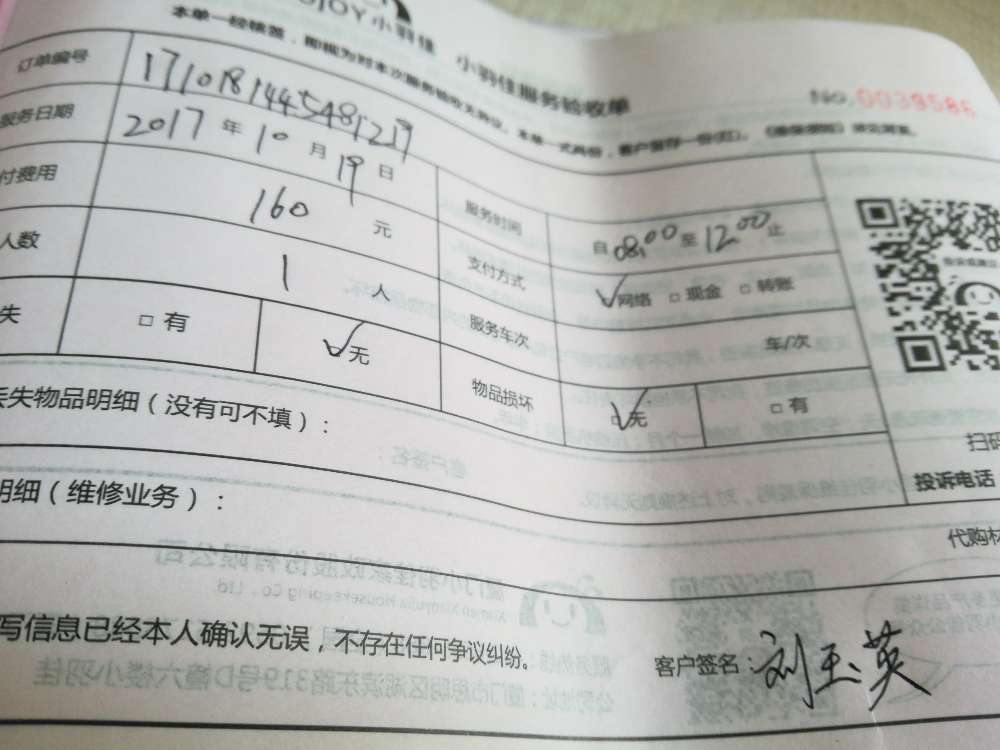 JOY小羽佳 小羽佳服务验收单
本单一经核签，即视为对本次服务验收无异议。本单一式两份，客户留存一份
No.0039586
订单编号 1710181445481217
服务日期 2017年10月19日 服务时间 自08:00至12:00止
付费用 160元 支付方式 ✓网络 □现金 □转账
人数 1人 服务车次 年/次
失 □有 ✓无 物品损坏 ✓无 □有
丢失物品明细（没有可不填）：
扫码
投诉电话
明细（维修业务）：
代购材
写信息已经本人确认无误，不存在任何争议纠纷。
客户签名：刘玉英